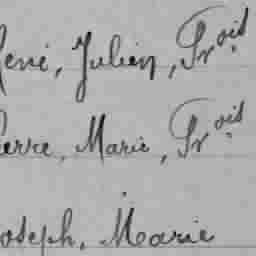 René, Julien, Frois
Pierre, Marie, Frois
Joseph, Marie